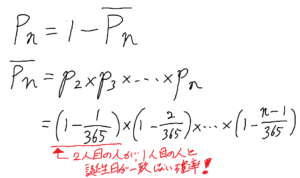 Pn = 1 − P̅n̅
P̅n̅ = p2 × p3 × ⋯ × pn
= (1 − 1/365) × (1 − 2/365) × ⋯ × (1 − n−1/365)
2人目の人が…1人目の人と
誕生日が一致しない確率!